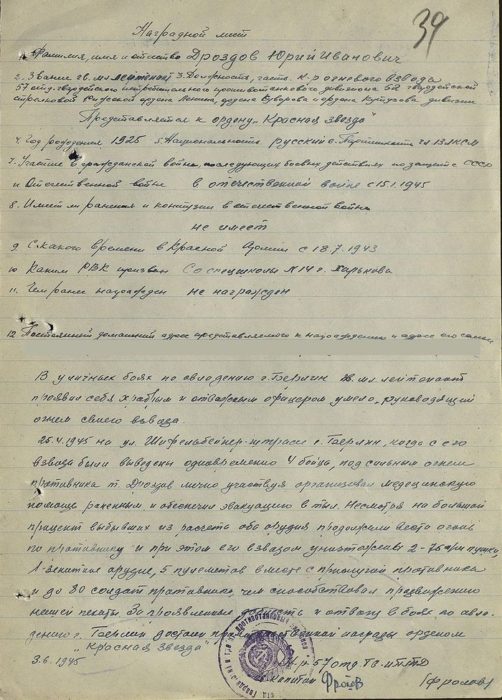 39
Наградной лист
1. Фамилия, имя и отчество Дроздов Юрий Иванович
2. Звание гв. мл. лейтенант 3. Должность, часть к-р огневого взвода
57 отд. гвардейского истребительного противотанкового дивизиона 52 гвардейской
стрелковой Рижской ордена Ленина, ордена Суворова и ордена Кутузова дивизии
Представляется к ордену „Красная звезда"
4. Год рождения 1925 5. Национальность русский 6. Партийность чл ВЛКСМ
7. Участие в гражданской войне, последующих боевых действиях по защите СССР
и Отечественной войне в отечественной войне с 15.1.1945
8. Имеет ли ранения и контузии в отечественной войне
не имеет
9 С какого времени в Красной Армии с 18.7.1943
10 Каким РВК призван Со спецшколы №14 г. Харькова
11. Чем ранее награжден не награжден
12 Постоянный домашний адрес представляемого к награждению и адрес его семьи
В уличных боях по овладению г. Берлин гв. мл. лейтенант
проявил себя храбрым и отважным офицером умело, руководящий
огнем своего взвода.
25.4.1945 на ул. Шифельбейнер-штрассе г. Берлин, когда с его
взвода были выведены одновременно 4 бойца, под сильным огнем
противника т. Дроздов лично участвуя организовал медецинскую
помощь раненным и обеспечил эвакуацию в тыл. Несмотря на большой
процент выбывших из расчета оба орудия продолжали вести огонь
по противнику и при этом его взводом уничтожены 2-75 мм пушки,
1-зенитна орудия, 5 пулеметов вместе с прислугой противника
и до 80 солдат противника, чем способствовал продвижению
нашей пехоты. За проявленные и отвагу в боях по овла-
дению г. Берлин достоин правительственной награды орденом
„Красная звезда"
3.6.1945 К-р 57 отд гв ИПТД
капитан Фролов /Фролов/